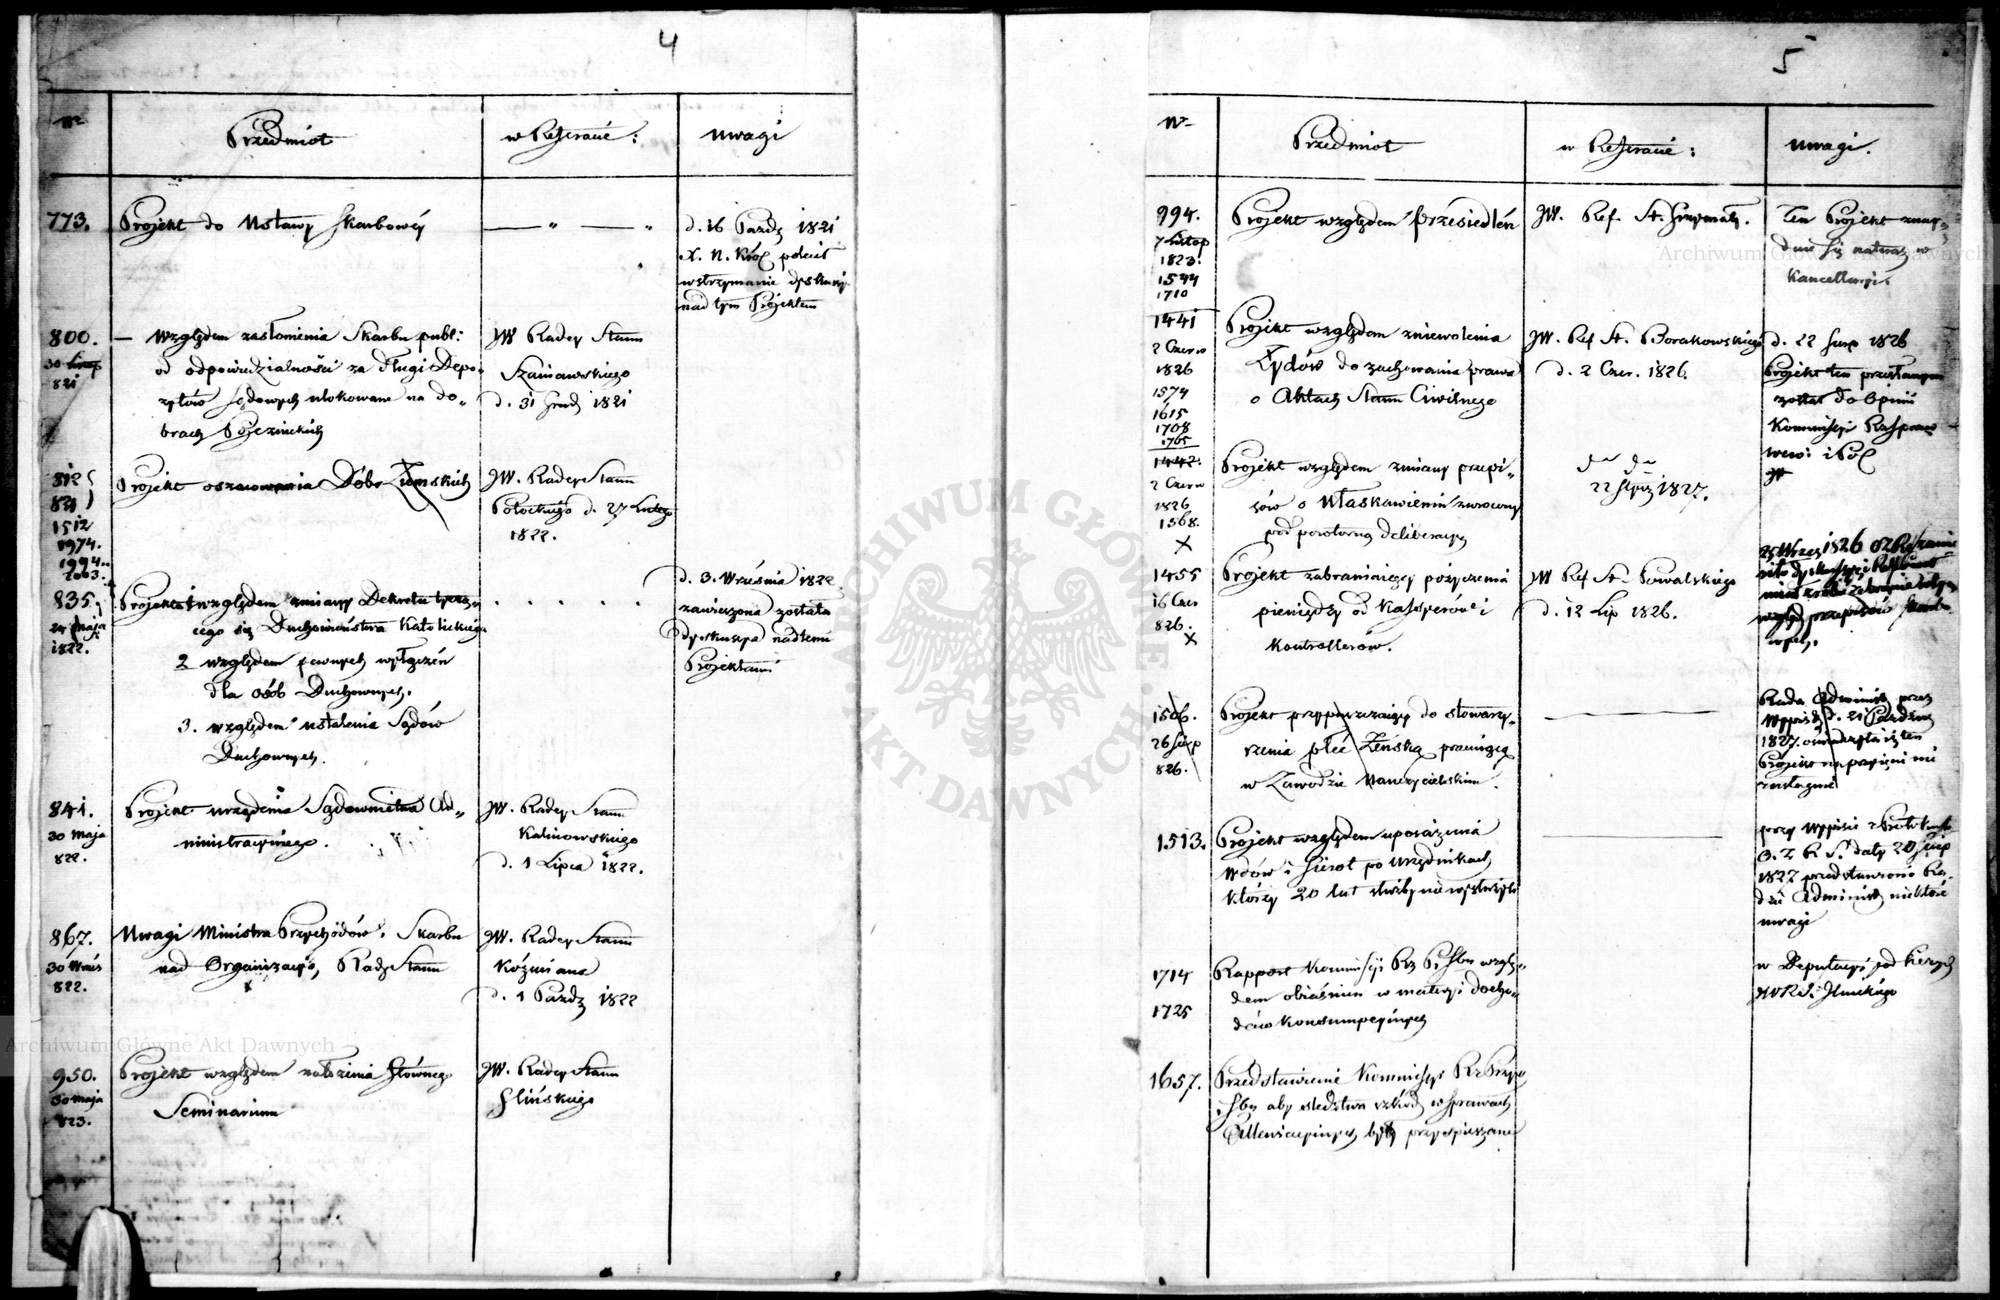 4
Nro
Przedmiot
w Referacie:
uwagi
773.
Projekt do Ustawy Skarbowey
— " — "
d. 16 Pazdz 1821
X. N. Król polecił
wstrzymanie dyskusyi
nad tym Projektem
800.
30 Listop
821
— względem zasłonienia Skarbu publ:
od odpowiedzialności za Długi Depo-
zytów Sądowych ulokowane na do-
brach Pojezuickich
JW Radcy Stanu
Szaniawskiego
d. 31 Grud 1821
812
821
1512
1974.
1994.
2003.
Projekt oszacowania Dóbr Ziemskich
JW. Radcy Stanu
Potockiego d. 27 Lutego
1822.
835.
24 maja
1822.
Projekta 1 względem zmiany Dekretu tyczą-
cego się Duchowieństwa Katolickiego
2 względem pewnych wyłączeń
dla osób Duchownych.
3. względem ustalenia Sądów
Duchownych.
. . . . .
d. 3. Września 1822.
zawieszona została
dyskussya nad temi
Projektami
841.
30 maja
822.
Projekt urządzenia Sądownictwa Ad-
ministracyinego.
JW. Radcy Stanu
Kalinowskiego
d. 1 Lipca 1822.
867.
30 Wrześ
822.
Uwagi Ministra Przychodów i Skarbu
nad Organizacyą Rady Stanu
JW. Radcy Stanu
Koźmiana
d. 1 Pazdz 1822
950.
30 maja
823.
Projekt względem założenia Głównego
Seminarium
JW. Radcy Stanu
Glińskiego
5
Nro
Przedmiot
w Referacie:
uwagi.
994.
7 Listop
1823.
1544
1710
Projekt względem przesiedleń
JW. Ref. St. Grzymały.
Ten Projekt znay-
duie się nateraz w
Kancellaryi.
1441
2 Czerw
1826
1574
1615
1708
1765
Projekt względem zniewolenia
Żydów do zachowania prawa
o Aktach Stanu Ciwilnego
JW. Ref St. Borakowskiego
d. 2 Czer. 1826.
d. 22 Sierp 1826
Projekt ten przesłanym
został do Opinii
Kommissyi Rz Spraw
wew: i Pol
1442.
2 Czerw
1826
1568.
X
Projekt względem zmiany przepi-
sów o Ułaskawieniu zwrocony
pod powtorną deliberacyą
do do
22 Stycz 1827.
1455
16 Czer
826.
X
Projekt zabraniaiący pożyczania
pieniędzy od Kassyerów i
Kontrollerów.
JW Ref St. Kowalskiego
d. 12 Lip 1826.
25 Wrześ 1826
1506.
26 Sierp
826.
Projekt przypuszczaiący do stowarzy-
szenia płeć Żeńską pracuiącą
w Zawodzie Nauczycielskim.
Rada Administr przez
Wypis d. 21 Pazdzier
1827. oświadczyła iż ten
Projekt na przyięcie nie
zasługuie
1513.
Projekt względem uposażenia
Wdów i Sierot po Urzędnikach
którzy 20 lat służby nie wysłużyli
przy Wypisie z Protokułu
O. Z. R S. daty 20 Sierp
1827 przedstawiono Ra-
dzie Administr niektóre
uwagi
1714
1725
Rapport Kommissyi Rz P. i Sbu wzglę-
dem obiaśnień w materyi docho-
dów Konsumpcyinych
w Deputacyi pod kierunk
JW R. S.
1657.
Przedstawienie Kommissyi Rz Przy
i Sbu aby śledztwa szkód w sprawach
były przyspieszane
Archiwum Główne Akt Dawnych
Archiwum Główne Akt Dawnych
ARCHIWUM GŁÓWNE AKT DAWNYCH